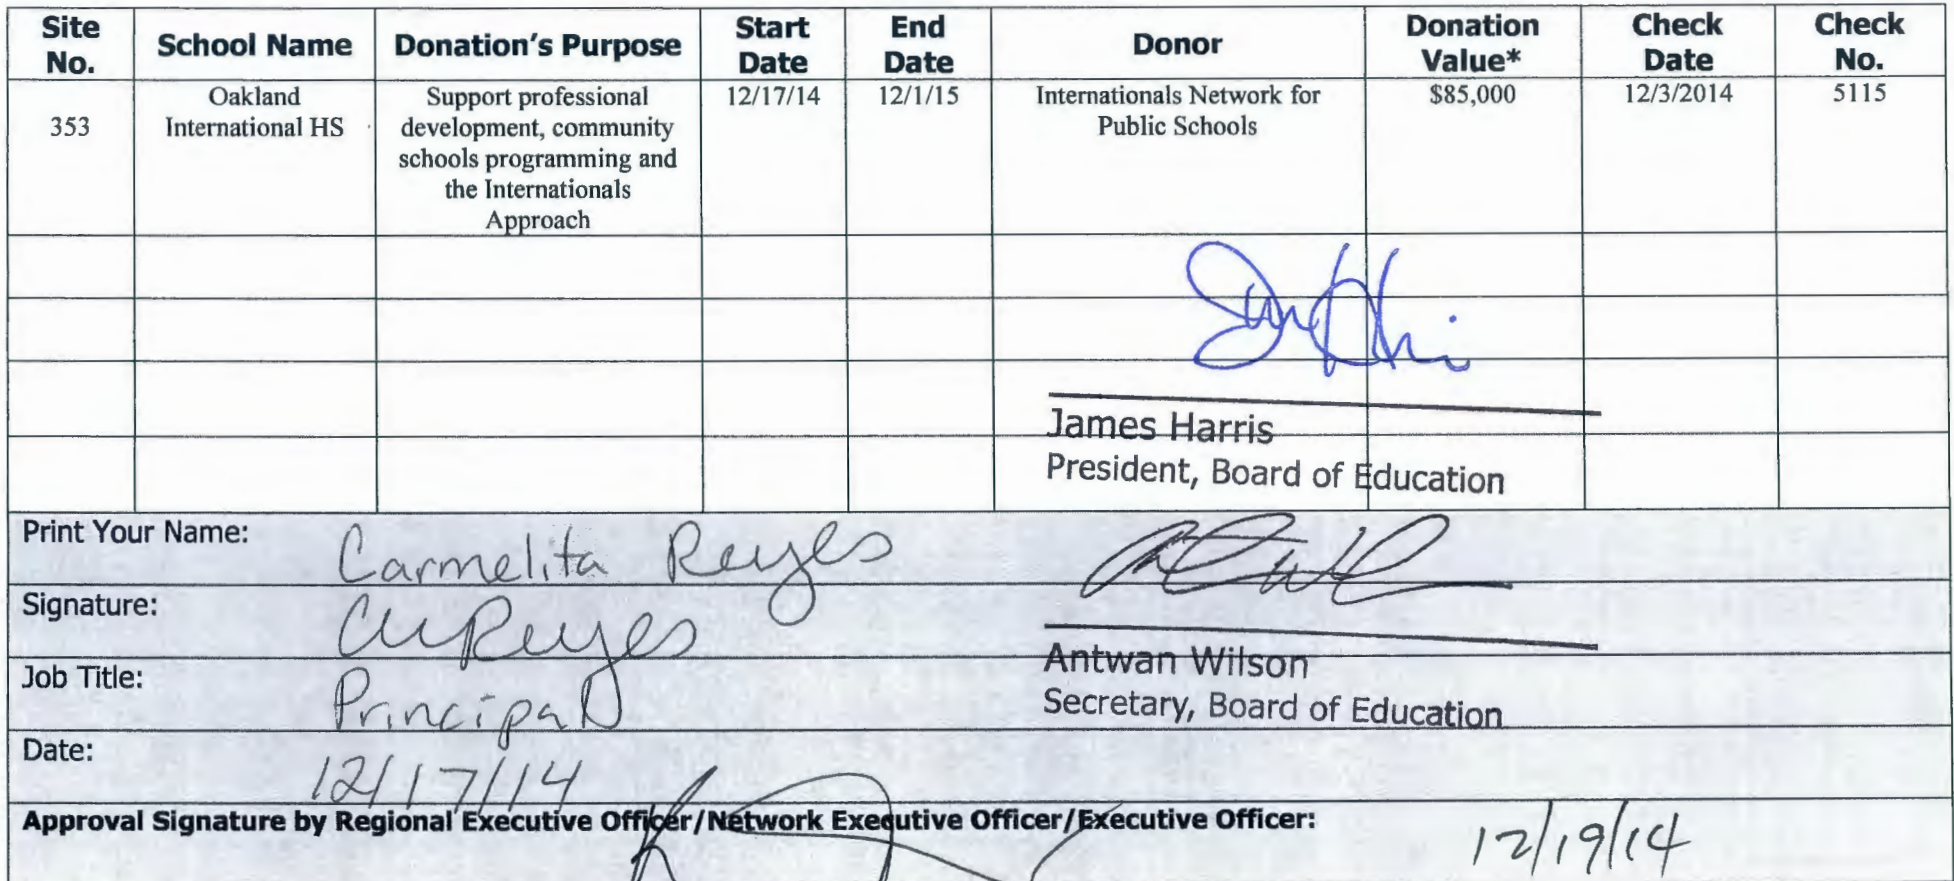 Site No.
School Name
Donation's Purpose
Start Date
End Date
Donor
Donation Value*
Check Date
Check No.
353
Oakland
International HS
Support professional
development, community
schools programming and
the Internationals
Approach
12/17/14
12/1/15
Internationals Network for
Public Schools
$85,000
12/3/2014
5115
James Harris
President, Board of Education
Print Your Name: Carmelita Reyes
Signature: CMReyes
Antwan Wilson
Secretary, Board of Education
Job Title: Principal
Date: 12/17/14
Approval Signature by Regional Executive Officer/Network Executive Officer/Executive Officer: 12/19/14